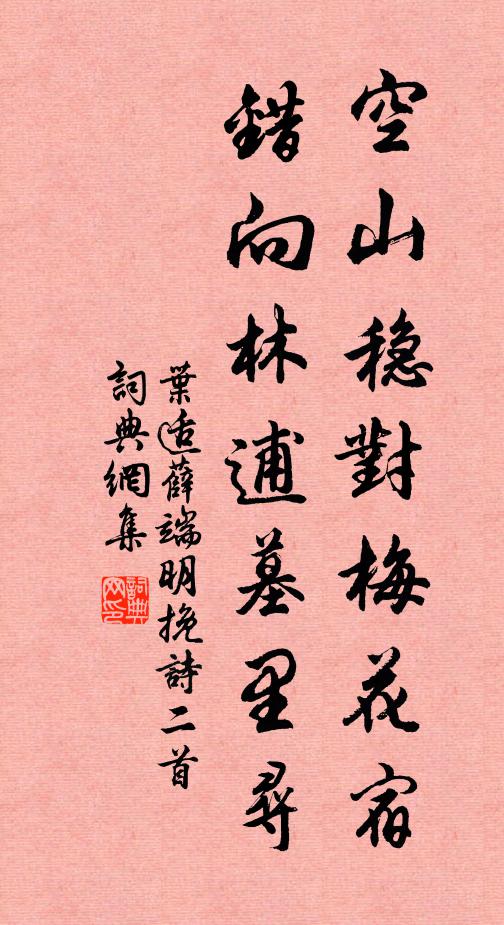 空山穩對梅花宿
錯向林逋墓里尋
葉适薛端明挽詩二首
詞典網集
詞典网印